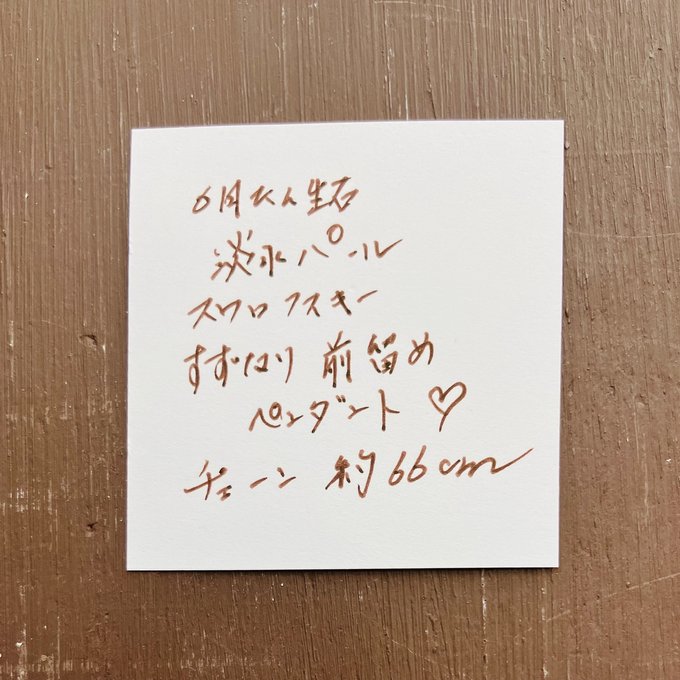 6月たん生石
淡水パール
スワロフスキー
すずなり 前留め
ペンダント ♡
チェーン 約66cm